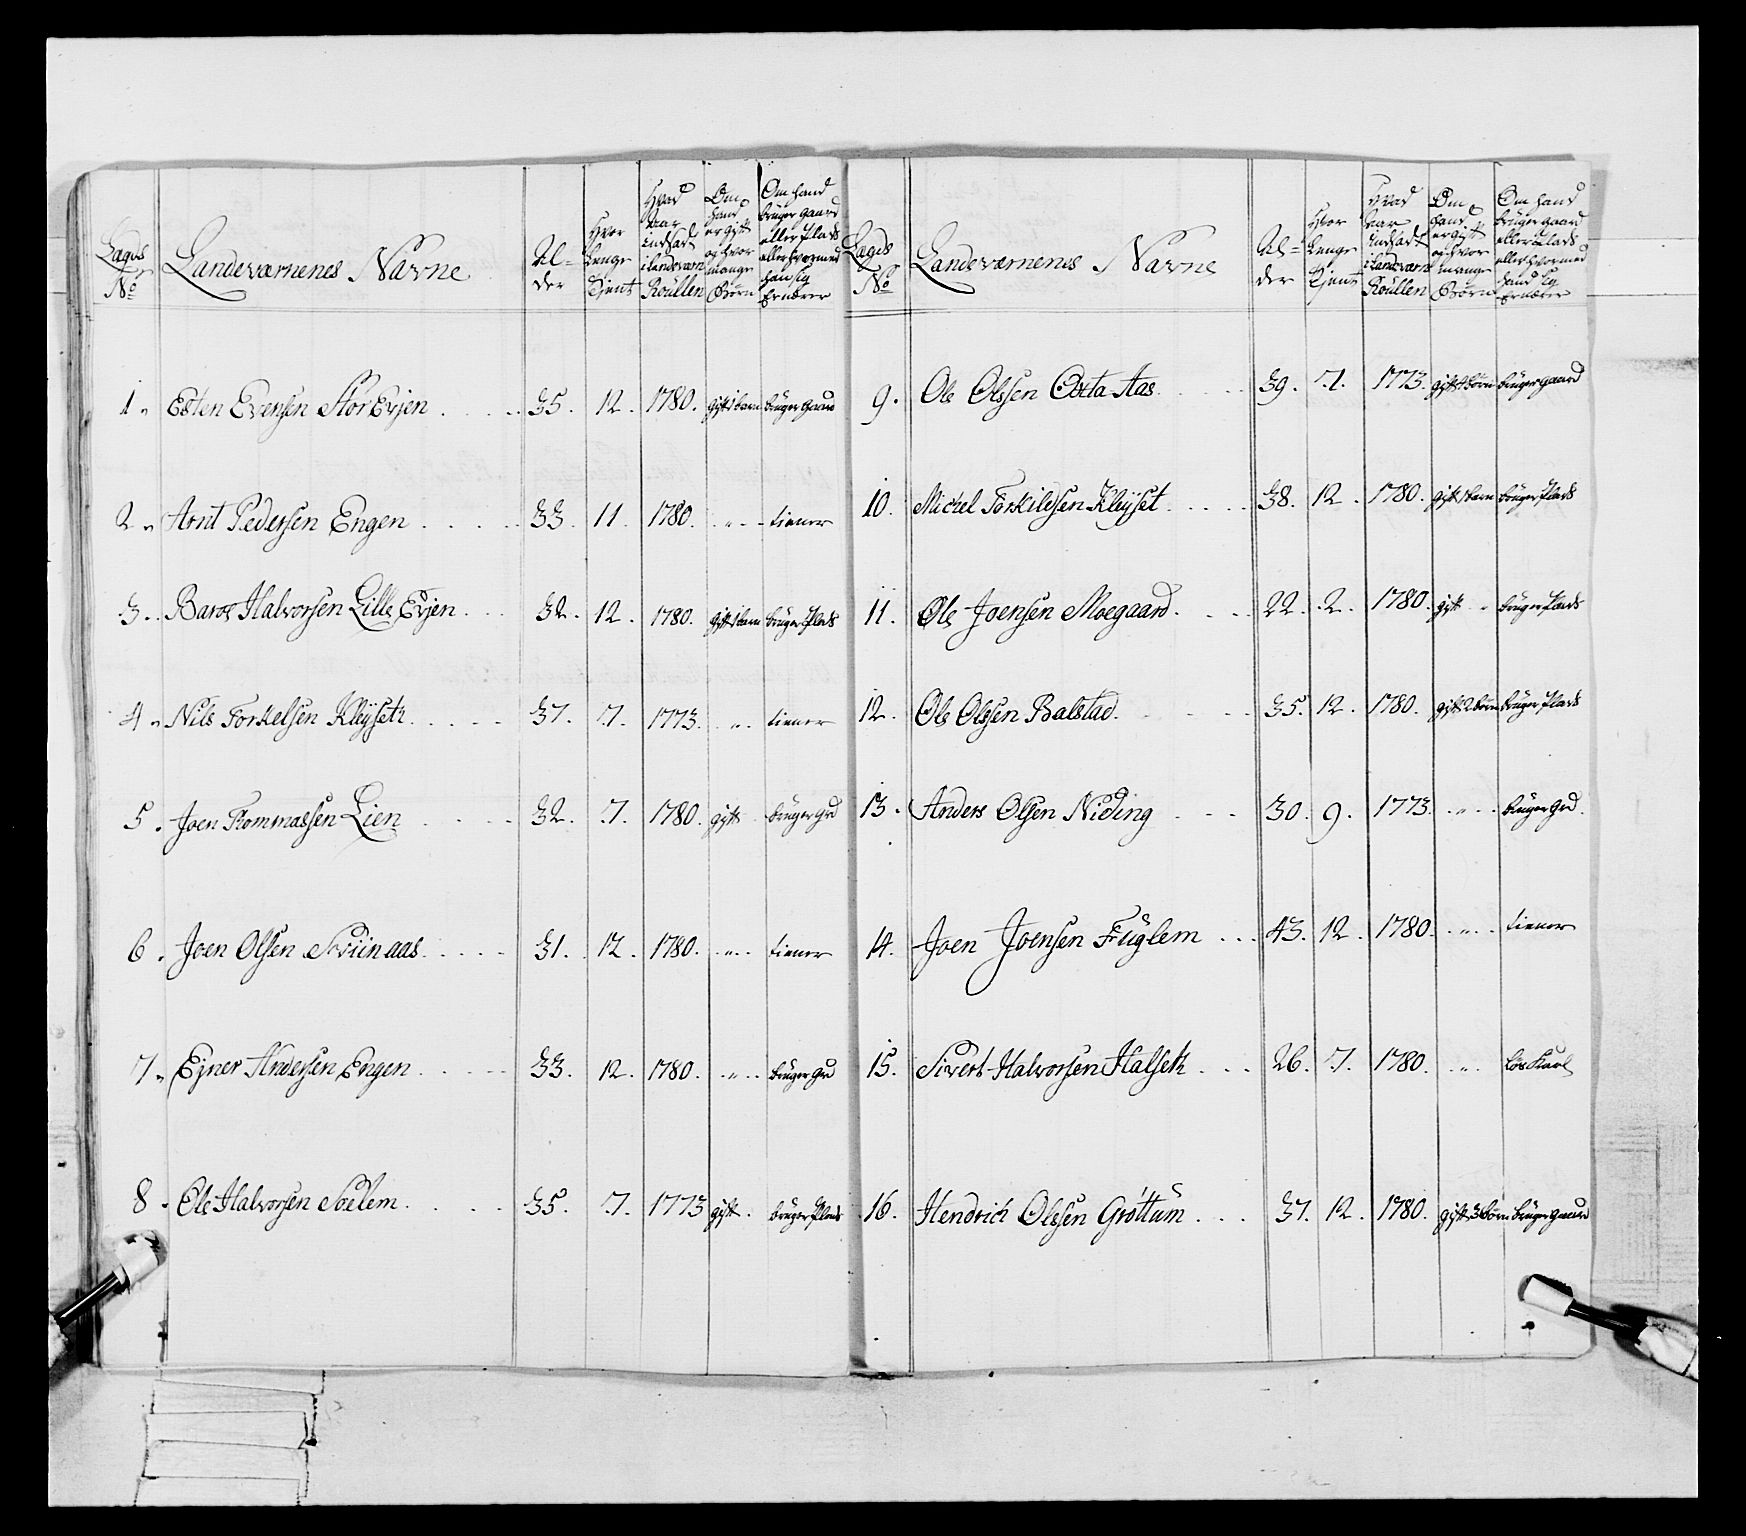 Lægds No | Landeværnenes Navne | Al=der | Hvor Lenge Tjent | Hvad Aar indsadt i Landeværn Roullen | Om hand er gift og hvor mange Børn | Om hand bruger gaard eller Plads eller hvormed hand sig Ernærer
1. Esten Evensen StorEvjen | 35. | 12. | 1780. | gift 1 barn | bruger gaard
2. Arnt Pedersen Engen | 33. | 11. | 1780. | " | tiener
3. Baroe Halvorsen Lille Evjen | 32. | 12. | 1780. | gift 1 barn | bruger Plads
4. Nils Torkelsen Kleyseth | 37. | 7. | 1773. | " | tiener
5. Joen Tommassen Lien | 32. | 7. | 1780. | gift | bruger Grd
6. Joen Olsen Sviinaas | 31. | 12. | 1780. | " | tiener
7. Ejner Andersen Engen | 33. | 12. | 1780. | " | bruger Grd
8. Ole Halvorsen Soelem | 35. | 7. | 1773 | gift | bruger Plads
Lægds No | Landeværnenes Navne | Al=der | Hvor Lenge Tjent | Hvad Aar indsadt i Landeværn Roullen | Om hand er gift og hvor mange Børn | Om hand bruger gaard eller Plads eller hvormed hand sig Ernærer
9. Ole Olssen Aas | 39. | 7. | 1773. | gift 4 børn | bruger gaard
10. Michel Torkildsen Kleyset | 38. | 12. | 1780. | gift 1 barn | bruger Plads
11. Ole Joensen Moegaard | 22. | 2. | 1780. | gift " | bruger Plads
12. Ole Olssen Balstad | 35. | 12. | 1780. | gift 2 børn | bruger Plads
13. Anders Olsen Niding | 30. | 9. | 1773. | " | bruger Grd.
14. Joen Joensen Fuglem | 43. | 12. | 1780. | " | tiener
15. Sivert Halvorsen Halseth | 26. | 7. | 1780. | " | løs Karl
16. Hendrich Olssen Grøttum | 37. | 12. | 1780. | gift 3 børn | bruger gaard